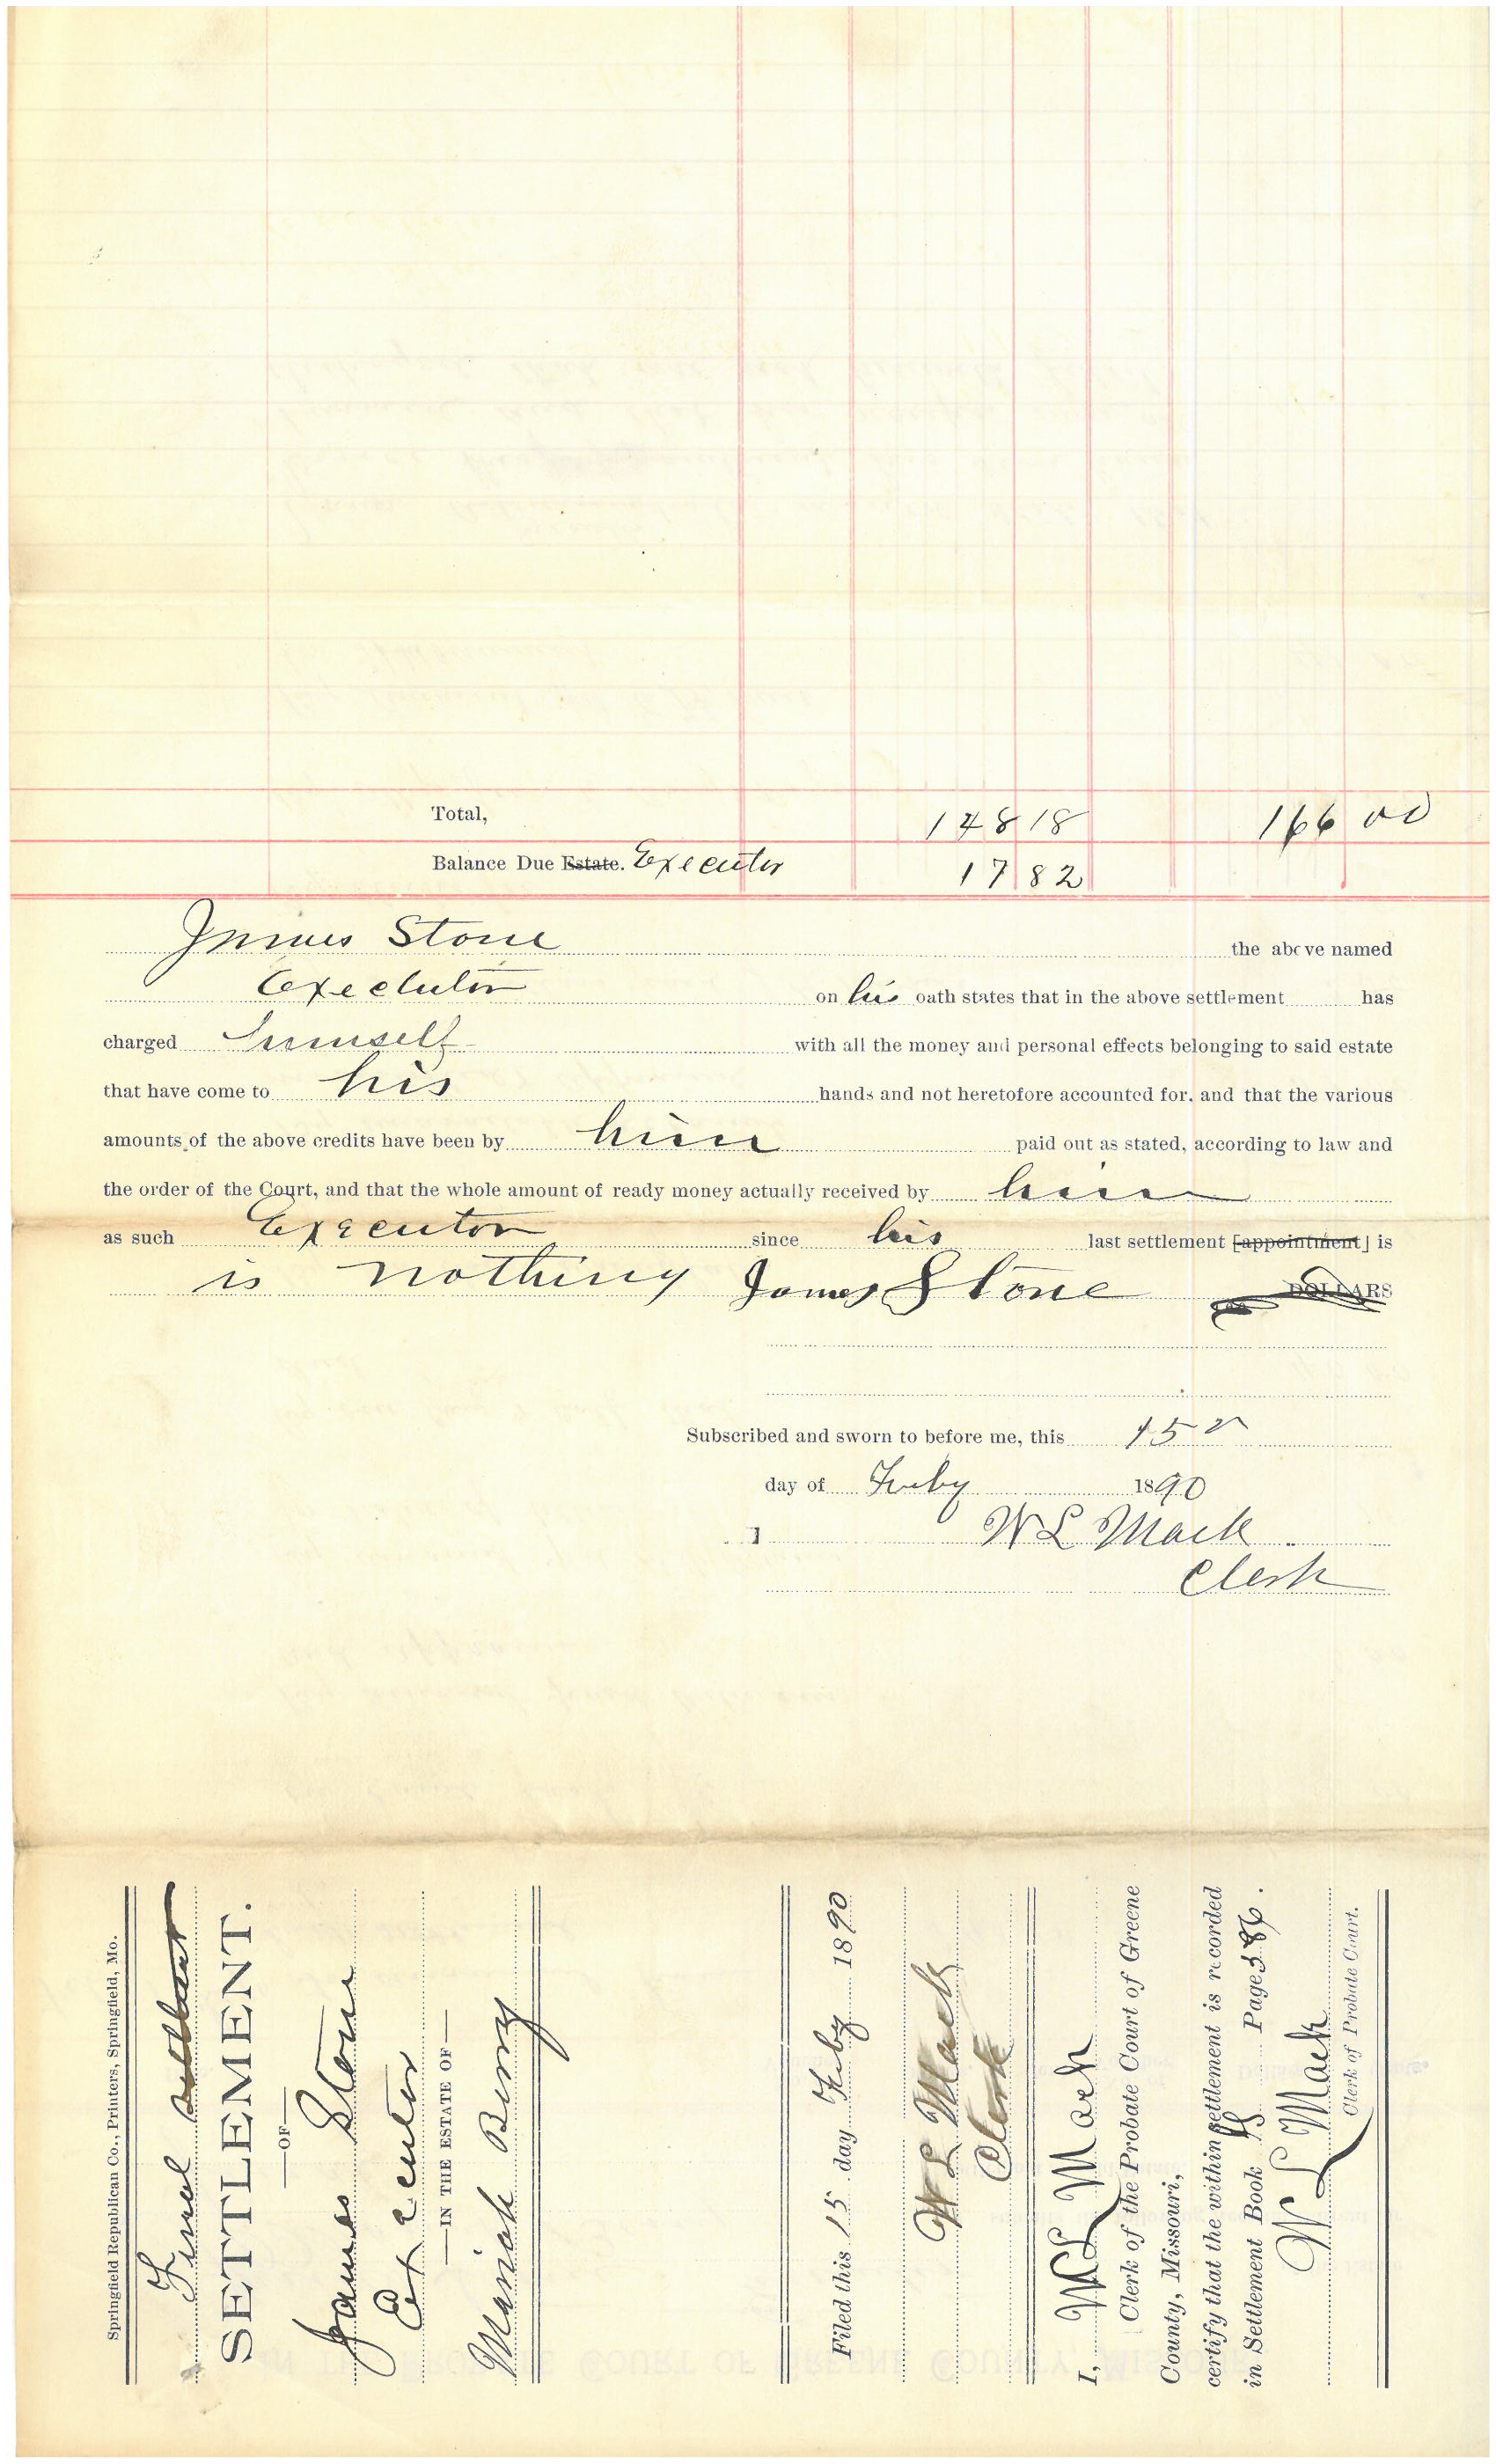 Total, 148 18 166 00
Balance Due Estate. Executor 17 82
James Stone the above named
Executor on his oath states that in the above settlement has
charged himself with all the money and personal effects belonging to said estate
that have come to his hands and not heretofore accounted for, and that the various
amounts of the above credits have been by him paid out as stated, according to law and
the order of the Court, and that the whole amount of ready money actually received by him
as such Executor since his last settlement [appointment] is
is nothing James Stone DOLLARS
Subscribed and sworn to before me, this 15
day of Feby 1890
W L Mack
Clerk
Springfield Republican Co., Printers, Springfield, Mo.
Final
SETTLEMENT.
—OF—
James Stone
Executor
—IN THE ESTATE OF—
Mariah
Filed this 15 day Feby 1890
W L Mack
Clerk
I, W L Mack
Clerk of the Probate Court of Greene
County, Missouri,
certify that the within settlement is recorded
in Settlement Book Page 386.
W L Mack
Clerk of Probate Court.